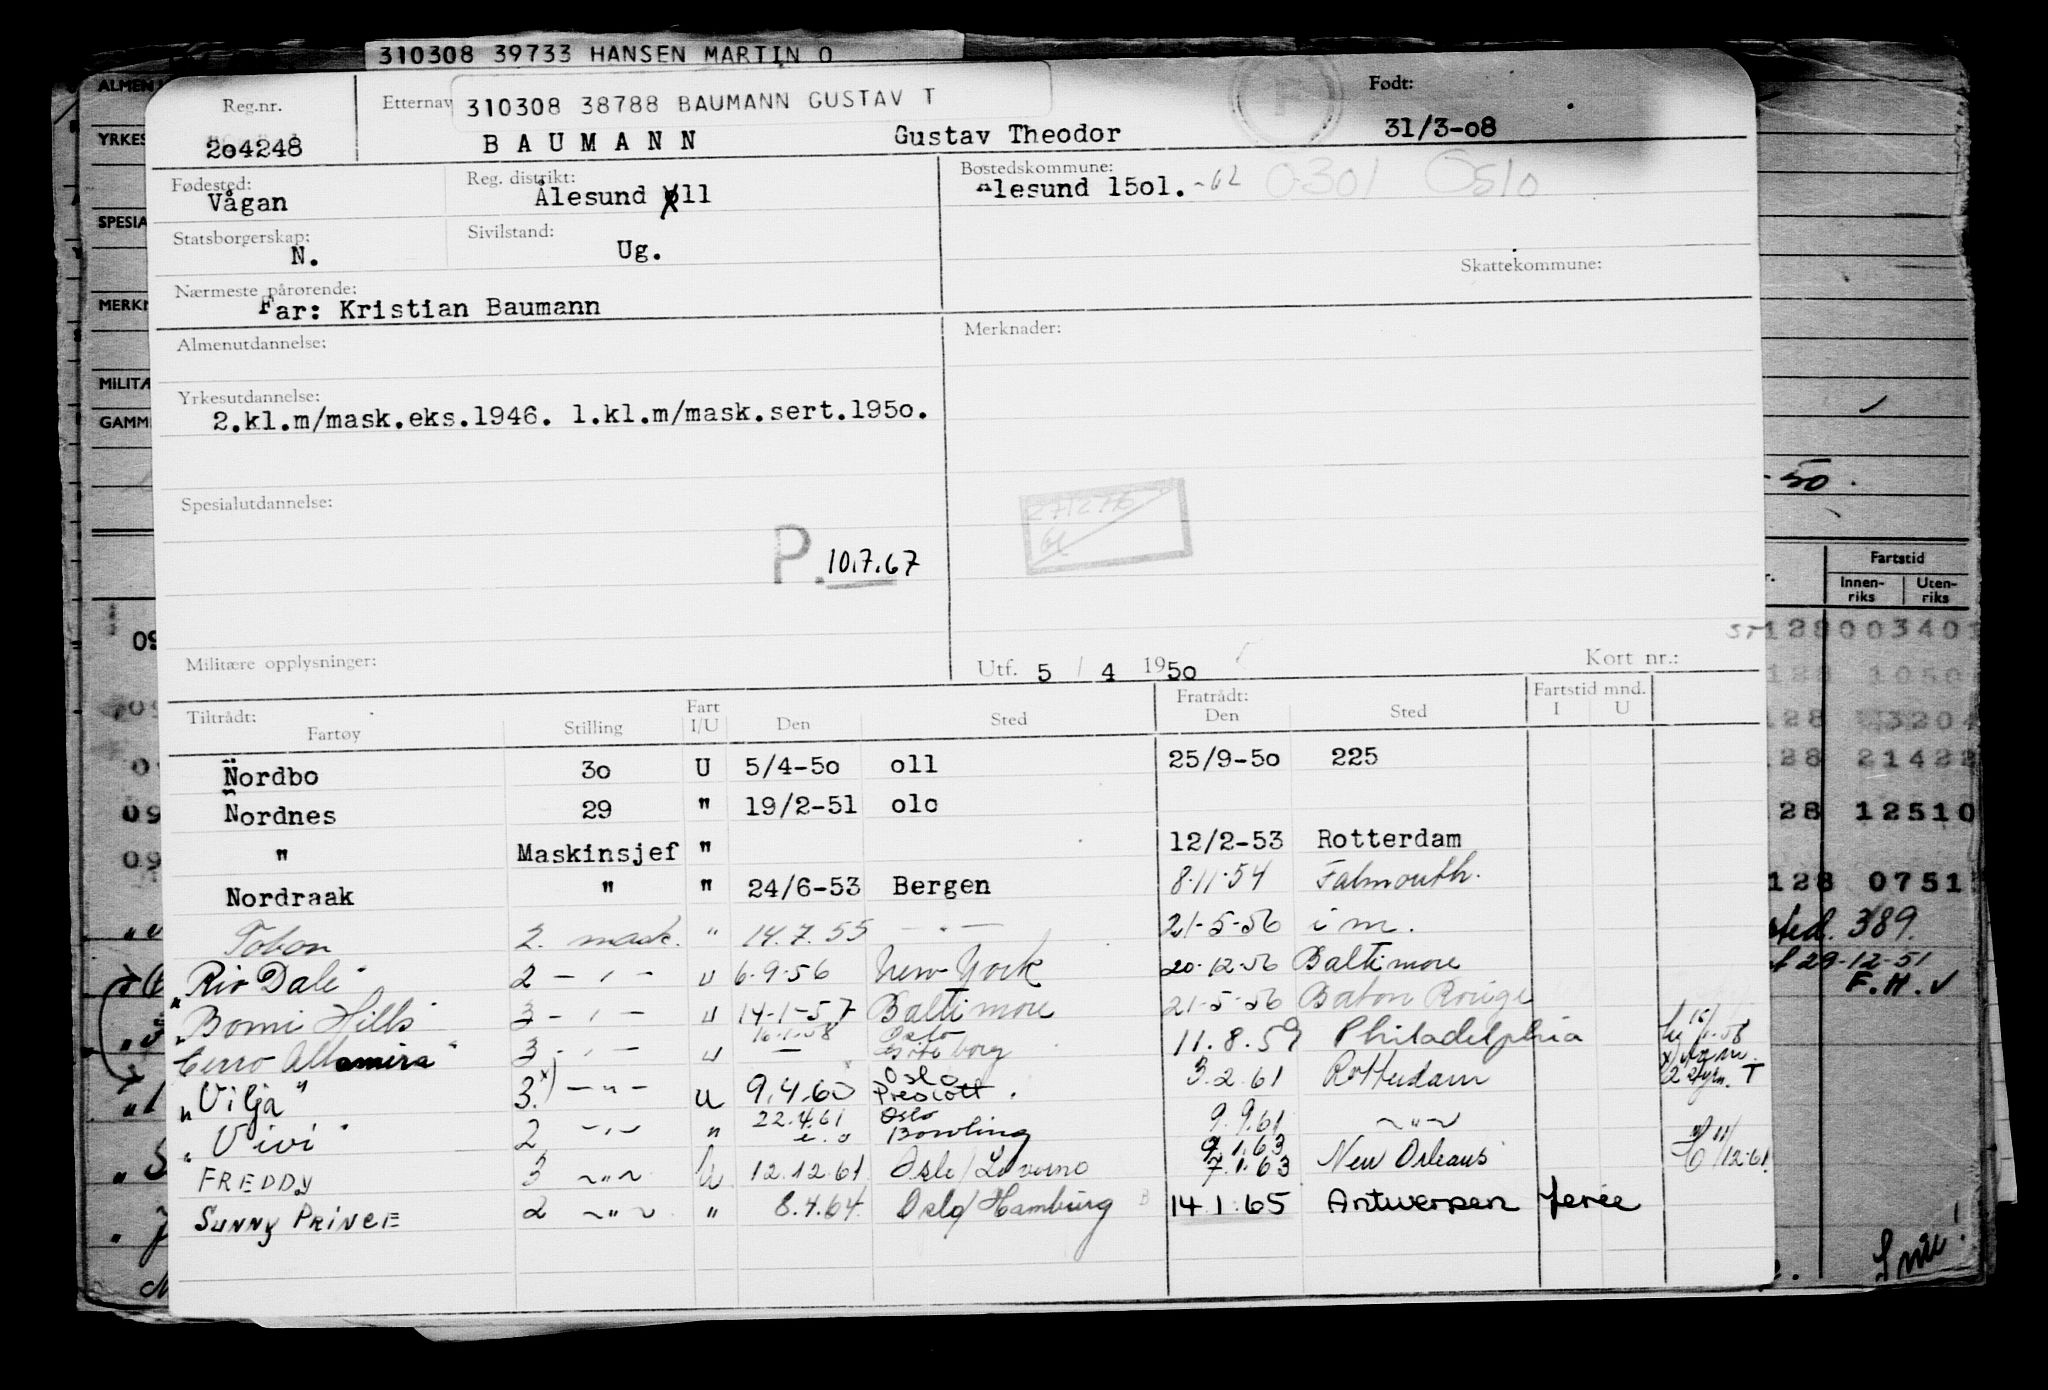 310308 39733 HANSEN MARTIN O
Reg.nr.
204248
Etternav
310308 38788 BAUMANN GUSTAV T
BAUMANN Gustav Theodor
Født:
31/3-08
Fødested:
Vågan
Reg. distrikt:
Ålesund 11
Bostedskommune:
Ålesund 1501. -62 0301 Oslo
Statsborgerskap:
N.
Sivilstand:
Ug.
Skattekommune:
Nærmeste pårørende:
Far: Kristian Baumann
Almenutdannelse:
Merknader:
Yrkesutdannelse:
2.kl.m/mask.eks.1946. 1.kl.m/mask.sert.1950.
Spesialutdannelse:
P. 10.7.67
Militære opplysninger:
Utf. 5 / 4 1950
Kort nr.:
Tiltrådt: Fartøy Stilling Fart I/U Den Sted Fratrådt: Den Sted Fartstid mnd. I U
Nordbo 30 U 5/4-50 011 25/9-50 225
Nordnes 29 " 19/2-51 010
" Maskinsjef " 12/2-53 Rotterdam
Nordraak " " 24/6-53 Bergen 8.11.54 Falmouth.
Tobon 2. mask. " 14.7.55 - " - 21-5-56 i m.
"Rio Dale" 2 - " - U 6.9.56 New York 20.12.56 Baltimore
"Bomi Hills" 3 - " - U 14-1-57 Baltimore 21-5-56 Baton Rouge
16.1.58 Oslo
"Cerro Altamira" 3 - " - U — Göteborg 11.8.59 Philadelphia
Oslo
"Vilja" 3. x) - " - U 9.4.60 Prescott. 3.2.61 Rotterdam
22.4.61 Oslo
"Vivi" 2 - " - " Bowling 9.9.61 - " -
9.1.63
FREDDY 3 - " - U 12.12.61 Oslo/Livorno 7.1.63 New Orleans
SUNNY PRINCE 2 - " - " 8.4.64. Oslo/Hamburg 14.1.65 Antwerpen ferie
ALMEN
YRKES
SPESIA
MERKN
MILITÆ
GAMM
-50.
Fartstid
Innen-riks Uten-riks
128 21422
128 12510
128 0751
389.
29-12-51
F.H.